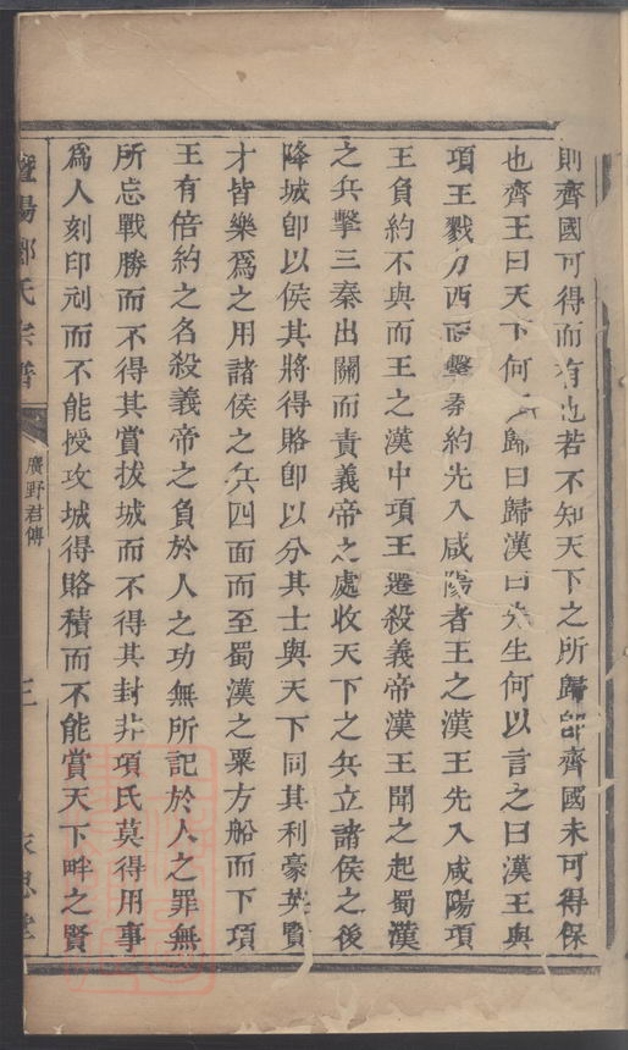 則齊國可得而有也若不知天下之所歸卽齊國未可得保
也齊王曰天下何所歸曰歸漢曰先生何以言之曰漢王與
項王戮力西面擊秦約先入咸陽者王之漢王先入咸陽項
王負約不與而王之漢中項王遷殺義帝漢王聞之起蜀漢
之兵擊三秦出關而責義帝之處收天下之兵立諸侯之後
降城卽以侯其將得賂卽以分其士與天下同其利豪英賢
才皆樂爲之用諸侯之兵四面而至蜀漢之粟方船而下項
王有倍約之名殺義帝之負於人之功無所記於人之罪無
所忘戰勝而不得其賞拔城而不得其封非項氏莫得用事
爲人刻印刓而不能授攻城得賂積而不能賞天下畔之賢
暨陽酈氏宗譜
廣野君傳
三
思堂